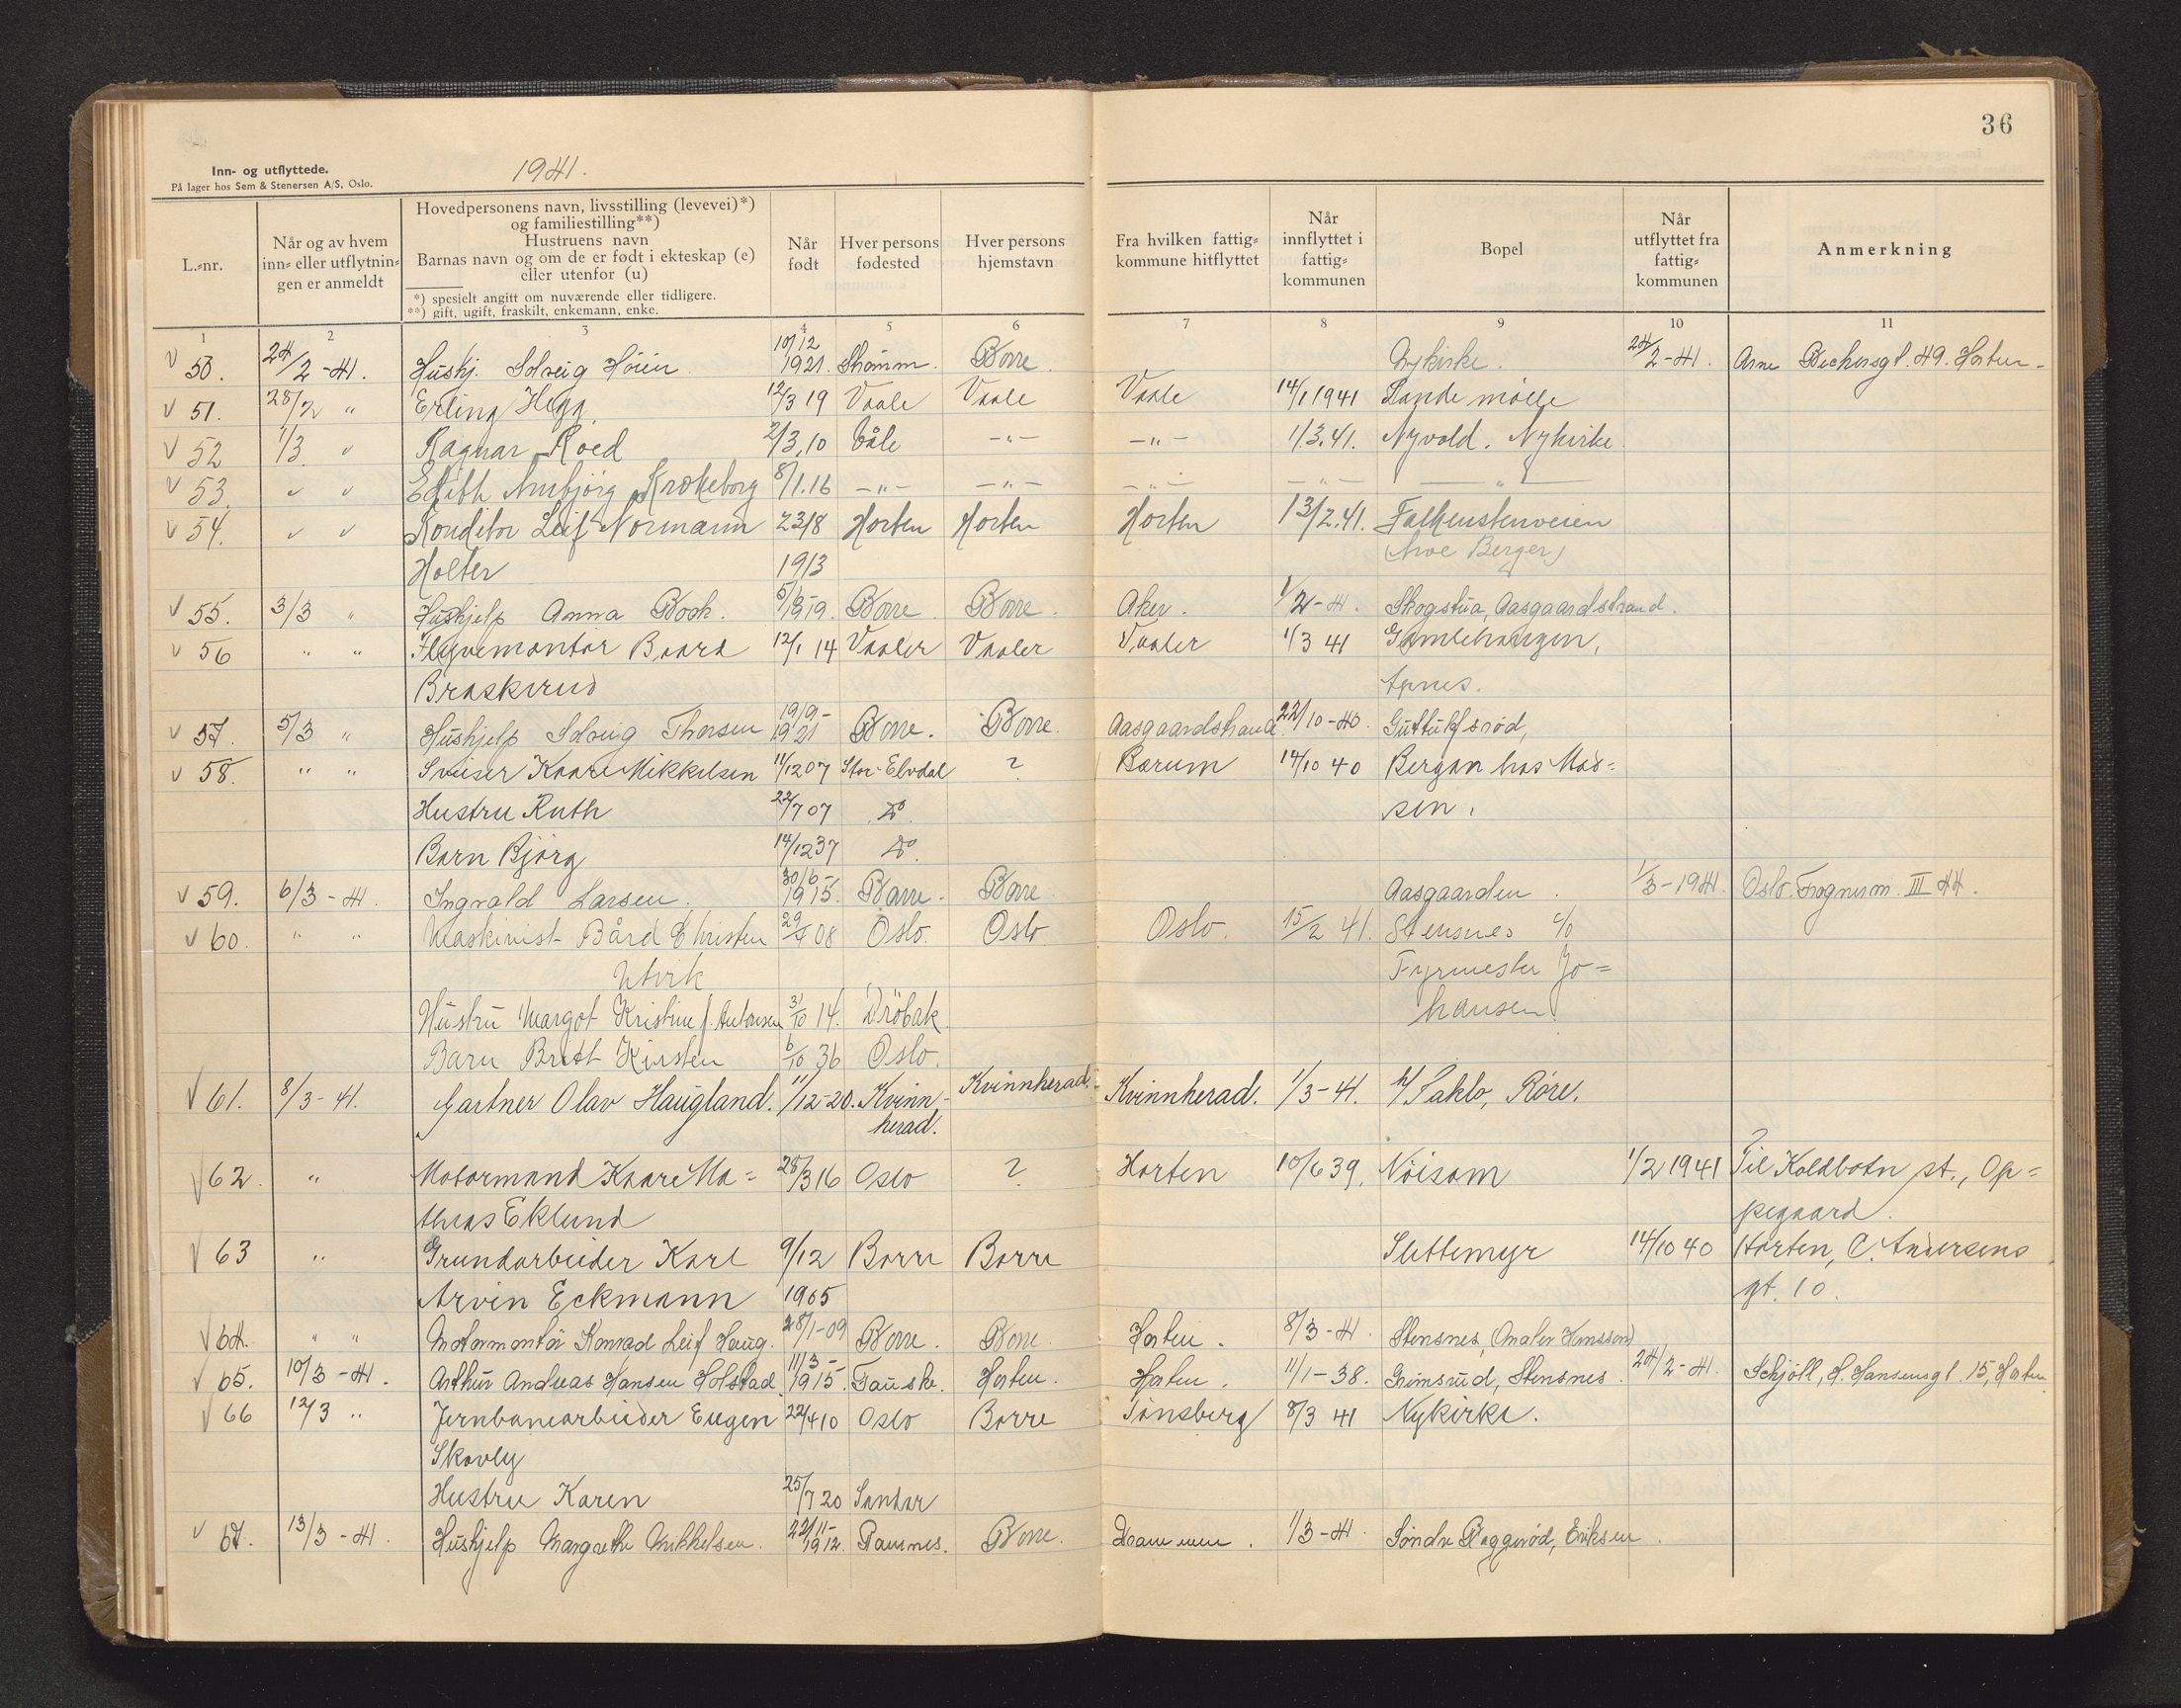 36
Inn- og utflyttede.
På lager hos Sem & Stenersen A/S, Oslo.
1941.
L.-nr.
Når og av hvem inn- eller utflytnin-gen er anmeldt
Hovedpersonens navn, livsstilling (levevei)*)
og familiestilling**)
Hustruens navn
Barnas navn og om de er født i ekteskap (e)
eller utenfor (u)
*) spesielt angitt om nuværende eller tidligere.
**) gift, ugift, fraskilt, enkemann, enke.
Når født
Hver persons fødested
Hver persons hjemstavn
Fra hvilken fattig-kommune hitflyttet
Når innflyttet i fattig-kommunen
Bopel
Når utflyttet fra fattig-kommunen
Anmerkning
1 2 3 4 5 6 7 8 9 10 11
10/12
50. 24/2-41. Hushj. Solveig Höien 1921. Strömm. Borre. Nykirke. 24/2-41. Arne Beckersgt. 49. Horten.
51. 28/2 " Erling Hegg 12/3 19 Vaale Vaale Vaale 14/1 1941 Sande mølle
52 1/3 " Ragnar Roed 2/3.10 Våle -"- -"- 1/3.41. Nyvold. Nykirke
53. " " Edith Ambjörg Krakeborg 8/1.16 -"- -"- -"- -"- -"-
54. " " Konditor Leif Normann 23/8 Horten Horten Horten 13/2.41. Falkenstenveien
Holter 1913 (Arve Berger)
55. 3/3 " Hushjelp Anna Bock. 5/8-1919. Borre Borre. Aker. 1/2-41. Skogstua, Aasgaardstrand.
56 " " Flyvemontör Baard 12/1 14 Vaaler Vaaler Vaaler 1/3 41 Gamlehaugen,
Braskerud Apnes.
19/9-
57. 5/3 " Hushjelp Solveig Thorsen 1921 Borre. Borre. Aasgaardstrand 22/10-40. Guttulfsröd,
58. " " Sveiser Kaare Mikkelsen 11/12 07 Stor-Elvdal ? Bærum 14/10 40 Bergan hos Mad-
Hustru Ruth 22/7 07 do. sen.
Barn Bjørg 14/12 37 do.
30/6-
59. 6/3-41. Ingvald Larsen. 1915. Borre. Borre Aasgaarden. 1/3-1941. Oslo. Frognerm. III 44.
60. " " Maskinist Bård Christen 29/4 08 Oslo. Oslo Oslo. 15/2 41. Stensnes c/o
Utvik Fyrmester Jo-
Hustru Margot Kristine f. Antonsen 31/10 14. Dröbak hansen
Barn Britt Kirsten 6/10 36 Oslo.
61. 8/3-41. Gartner Olav Haugland. 11/12-20. Kvinn- Kvinnherad. Kvinnherad. 1/3-41. h/ Paklo, Røre.
herad.
62. " Motormand Kaare Ma- 28/3 16 Oslo ? Horten 10/6 39. Nöisom 1/2 1941 Til Koldbotn st., Op-
thias Eklund pegaard.
63 " Grundarbeider Karl 9/12 Borre Borre Slettemyr 14/10 40 Horten, C. Andersens
Arvin Eckmann 1905 gt. 10.
64. " " Motormontör Konrad Leif Haug. 28/1-09 Borre. Borre. Horten. 8/3-41. Stensnes,
11/3-
65. 10/3-41. Arthur Andreas Hansen Holstad 1915. Fauske. Horten. Horten. 11/1-38. Grimsrud, Stensnes. 24/2-41. Schjöll, H. Hansensgt. 15, Horten
66 12/3 " Jernbanearbeider Eugen 22/4 10 Oslo Borre Tönsberg 8/3 41 Nykirke.
Skovly
Hustru Karen 25/7 20 Sandar
67. 13/3-41. Hushjelp Margrethe Mikkelsen. 22/11-1912. Ramnes. Borre. Drammen. 1/3-41. Söndre Baggeröd, Eriksen.